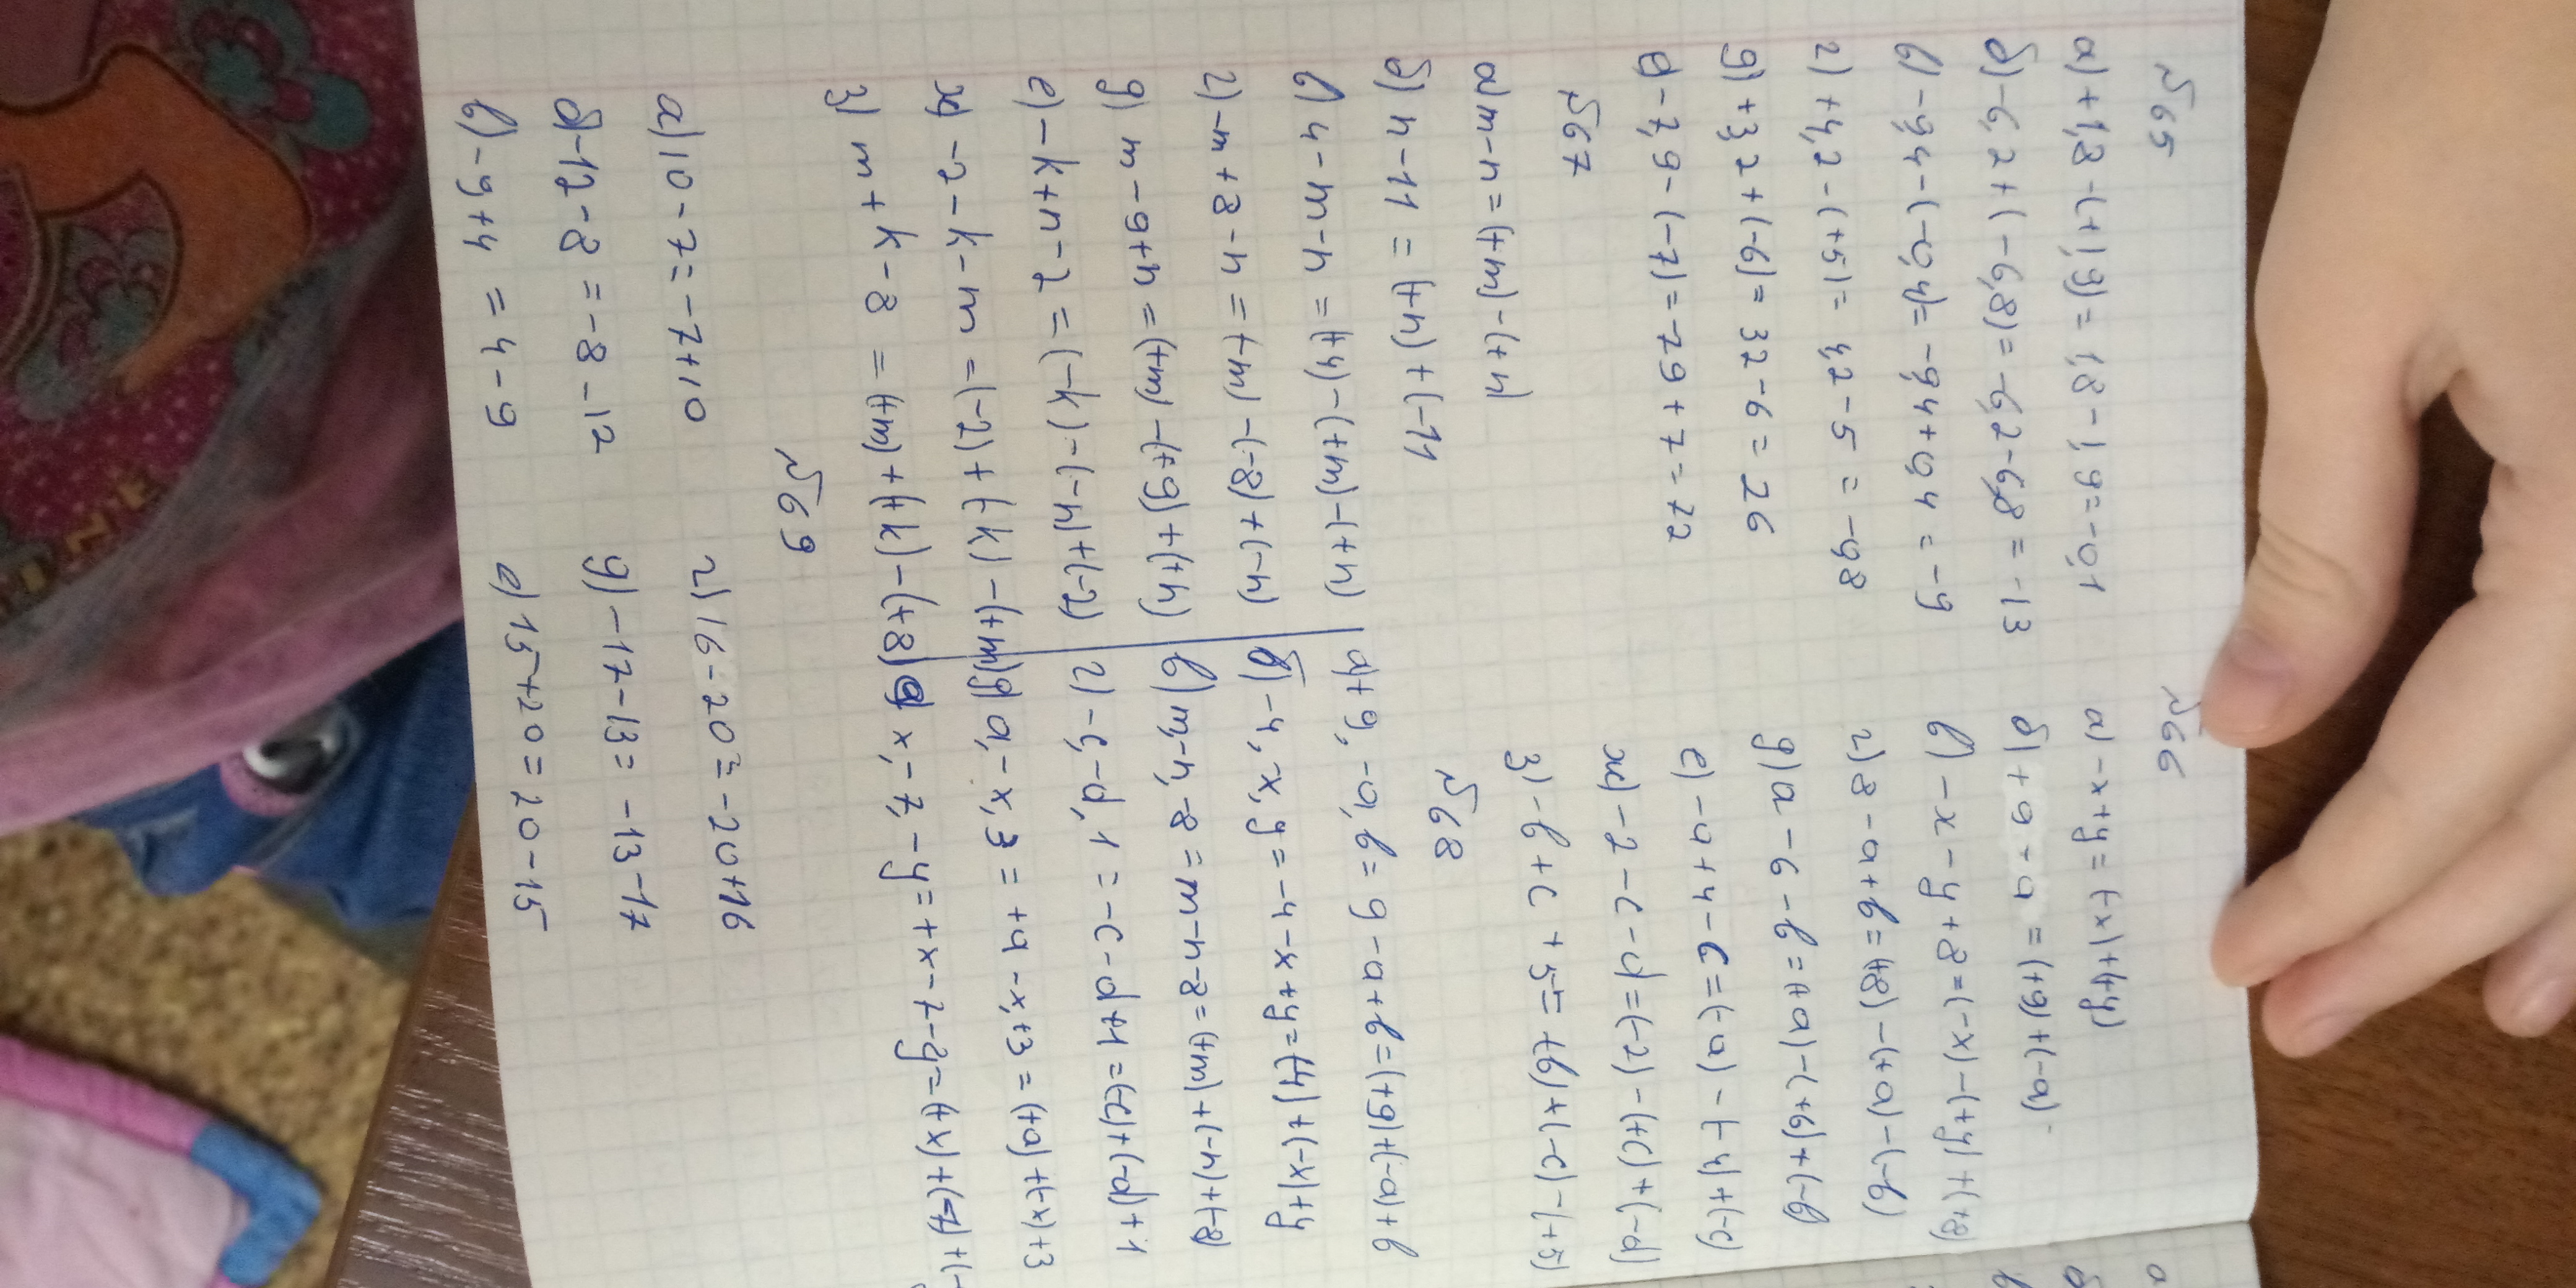 №65
а) +1,8 - (+1,9) = 1,8 - 1,9 = -0,1
б) -6,2 + (-6,8) = -6,2 - 6,8 = -13
в) -9,4 - (-0,4) = -9,4 + 0,4 = -9
г) +4,2 - (+5) = 4,2 - 5 = -98
д) +3,2 + (-6) = 32 - 6 = 26
е) -7,9 - (-7) = -79 + 7 = 72
№67
а) m - n = (+m) - (+n)
б) n - 11 = (+n) + (-11
в) 4 - m - n = (+4) - (+m) - (+n)
г) -m + 8 - n = (-m) - (-8) + (-n)
д) m - 9 + n = (+m) - (+9) + (+n)
е) -k + n - 2 = (-k) - (-n) + (-2)
ж) -2 - k - m = (-2) + (-k) - (+m)
з) m + k - 8 = (+m) + (+k) - (+8)
№69
а) 10 - 7 = -7 + 10
б) -12 - 8 = -8 - 12
в) -9 + 4 = 4 - 9
г) 16 - 20 = -20 + 16
д) -17 - 13 = -13 - 17
е) 15 + 20 = 20 - 15
№66
а) -x + y = (-x) + (+y)
б) + 9 - a = (+9) + (-a)
в) -x - y + 8 = (-x) - (+y) + (+8)
г) 8 - a + b = (+8) - (+a) - (-b)
д) a - 6 - b = (+a) - (+6) + (-b
е) -a + 4 - c = (-a) - (-4) + (-c)
ж) -2 - c - d = (-2) - (+c) + (-d)
з) -b + c + 5 = +(b) + (-c) - (+5)
№68
а) + 9, -a, b = 9 - a + b = (+9) + (-a) + b
б) -4, -x, y = -4 - x + y = (4) + (-x) + y
в) m, -n, -8 = m - n - 8 = (+m) + (-n) + (-8)
г) -c, -d, 1 = -c - d + 1 = (-c) + (-d) + 1
д) a, -x, 3 = +a - x, +3 = (+a) + (-x) + 3
x, -7, -y = +x - 7 - y = (+x) + (-7) + (-
а
б